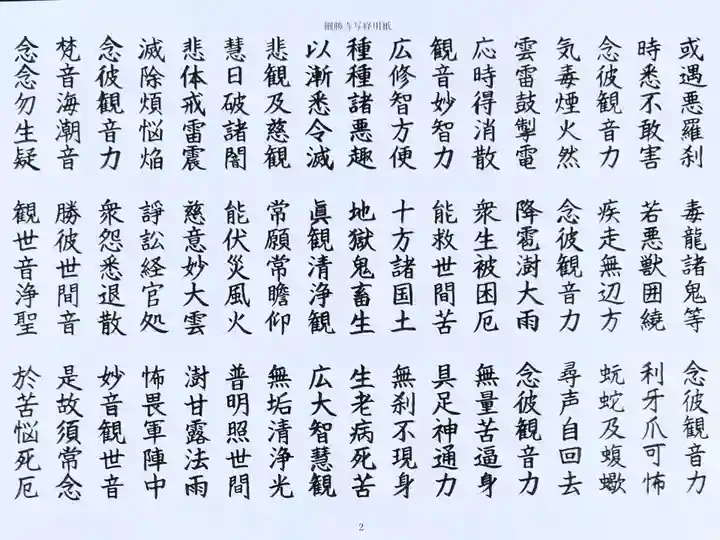 写経用紙
或遇悪羅刹 毒龍諸鬼等 念彼観音力
時悉不敢害 若悪獣囲繞 利牙爪可怖
念彼観音力 疾走無辺方 蚖蛇及蝮蠍
気毒煙火然 念彼観音力 尋声自回去
雲雷鼓掣電 降雹澍大雨 念彼観音力
応時得消散 衆生被困厄 無量苦逼身
観音妙智力 能救世間苦 具足神通力
広修智方便 十方諸国土 無刹不現身
種種諸悪趣 地獄鬼畜生 生老病死苦
以漸悉令滅 眞観清浄観 広大智慧観
悲観及慈観 常願常瞻仰 無垢清浄光
慧日破諸闇 能伏災風火 普明照世間
悲体戒雷震 慈意妙大雲 澍甘露法雨
滅除煩悩焔 諍訟経官処 怖畏軍陣中
念彼観音力 衆怨悉退散 妙音観世音
梵音海潮音 勝彼世間音 是故須常念
念念勿生疑 観世音浄聖 於苦悩死厄
2